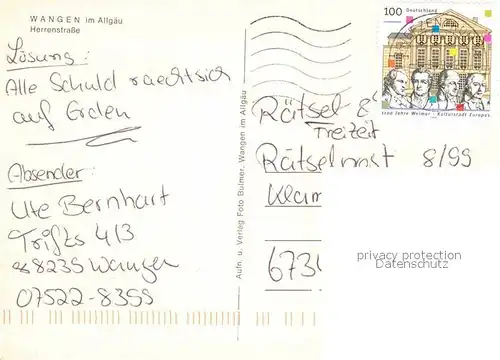 WANGEN im Allgäu
Herrenstraße
Lösung:
Alle Schuld raechtsich
auf Erden
Absender:
Ute Bernhart
4/3
88239 Wangen
07522-8399
Aufn. u. Verlag Foto Bulmer, Wangen im Allgäu
100 Deutschland
1100 Jahre Weimar - Kulturstadt Europas
Rätsel &
Freizeit
Rätselmixt 8/99
Klam
673
privacy protection
Datenschutz